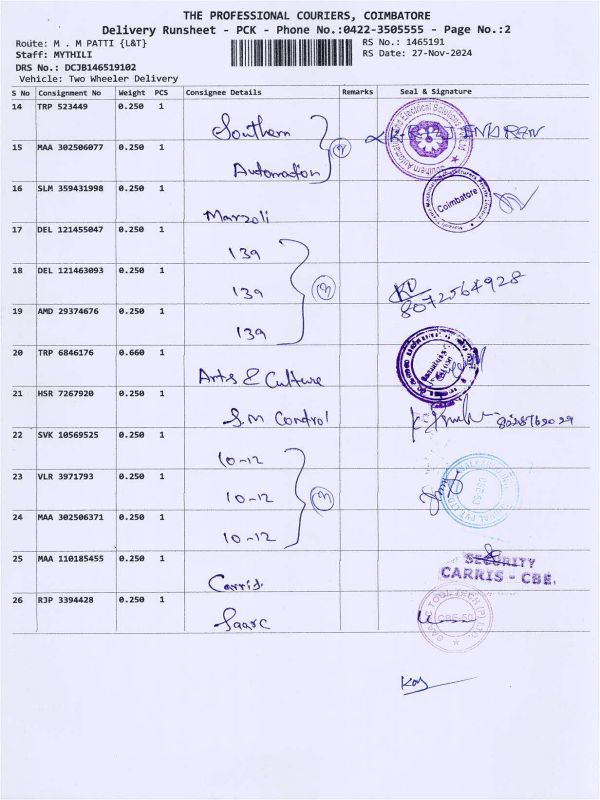 THE PROFESSIONAL COURIERS, COIMBATORE
Delivery Runsheet - PCK - Phone No.:0422-3505555 - Page No.:2
Route: M . M PATTI {L&T}
RS No.: 1465191
Staff: MYTHILI
RS Date: 27-Nov-2024
DRS No.: DCJB146519102
Vehicle: Two Wheeler Delivery
S No Consignment No Weight PCS Consignee Details Remarks Seal & Signature
14 TRP 523449 0.250 1 Southern
15 MAA 302506077 0.250 1 Automation 2
16 SLM 359431998 0.250 1 Marzoli Coimbatore
17 DEL 121455047 0.250 1 139
18 DEL 121463093 0.250 1 139 3 8072564928
19 AMD 29374676 0.250 1 139
20 TRP 6846176 0.660 1 Arts & Culture
21 HSR 7267920 0.250 1 S.M Control
22 SVK 10569525 0.250 1 10-12
23 VLR 3971793 0.250 1 10-12 3
24 MAA 302506371 0.250 1 10-12
25 MAA 110185455 0.250 1 Carris SECURITY
CARRIS - CBE.
26 RJP 3394428 0.250 1 Saarc